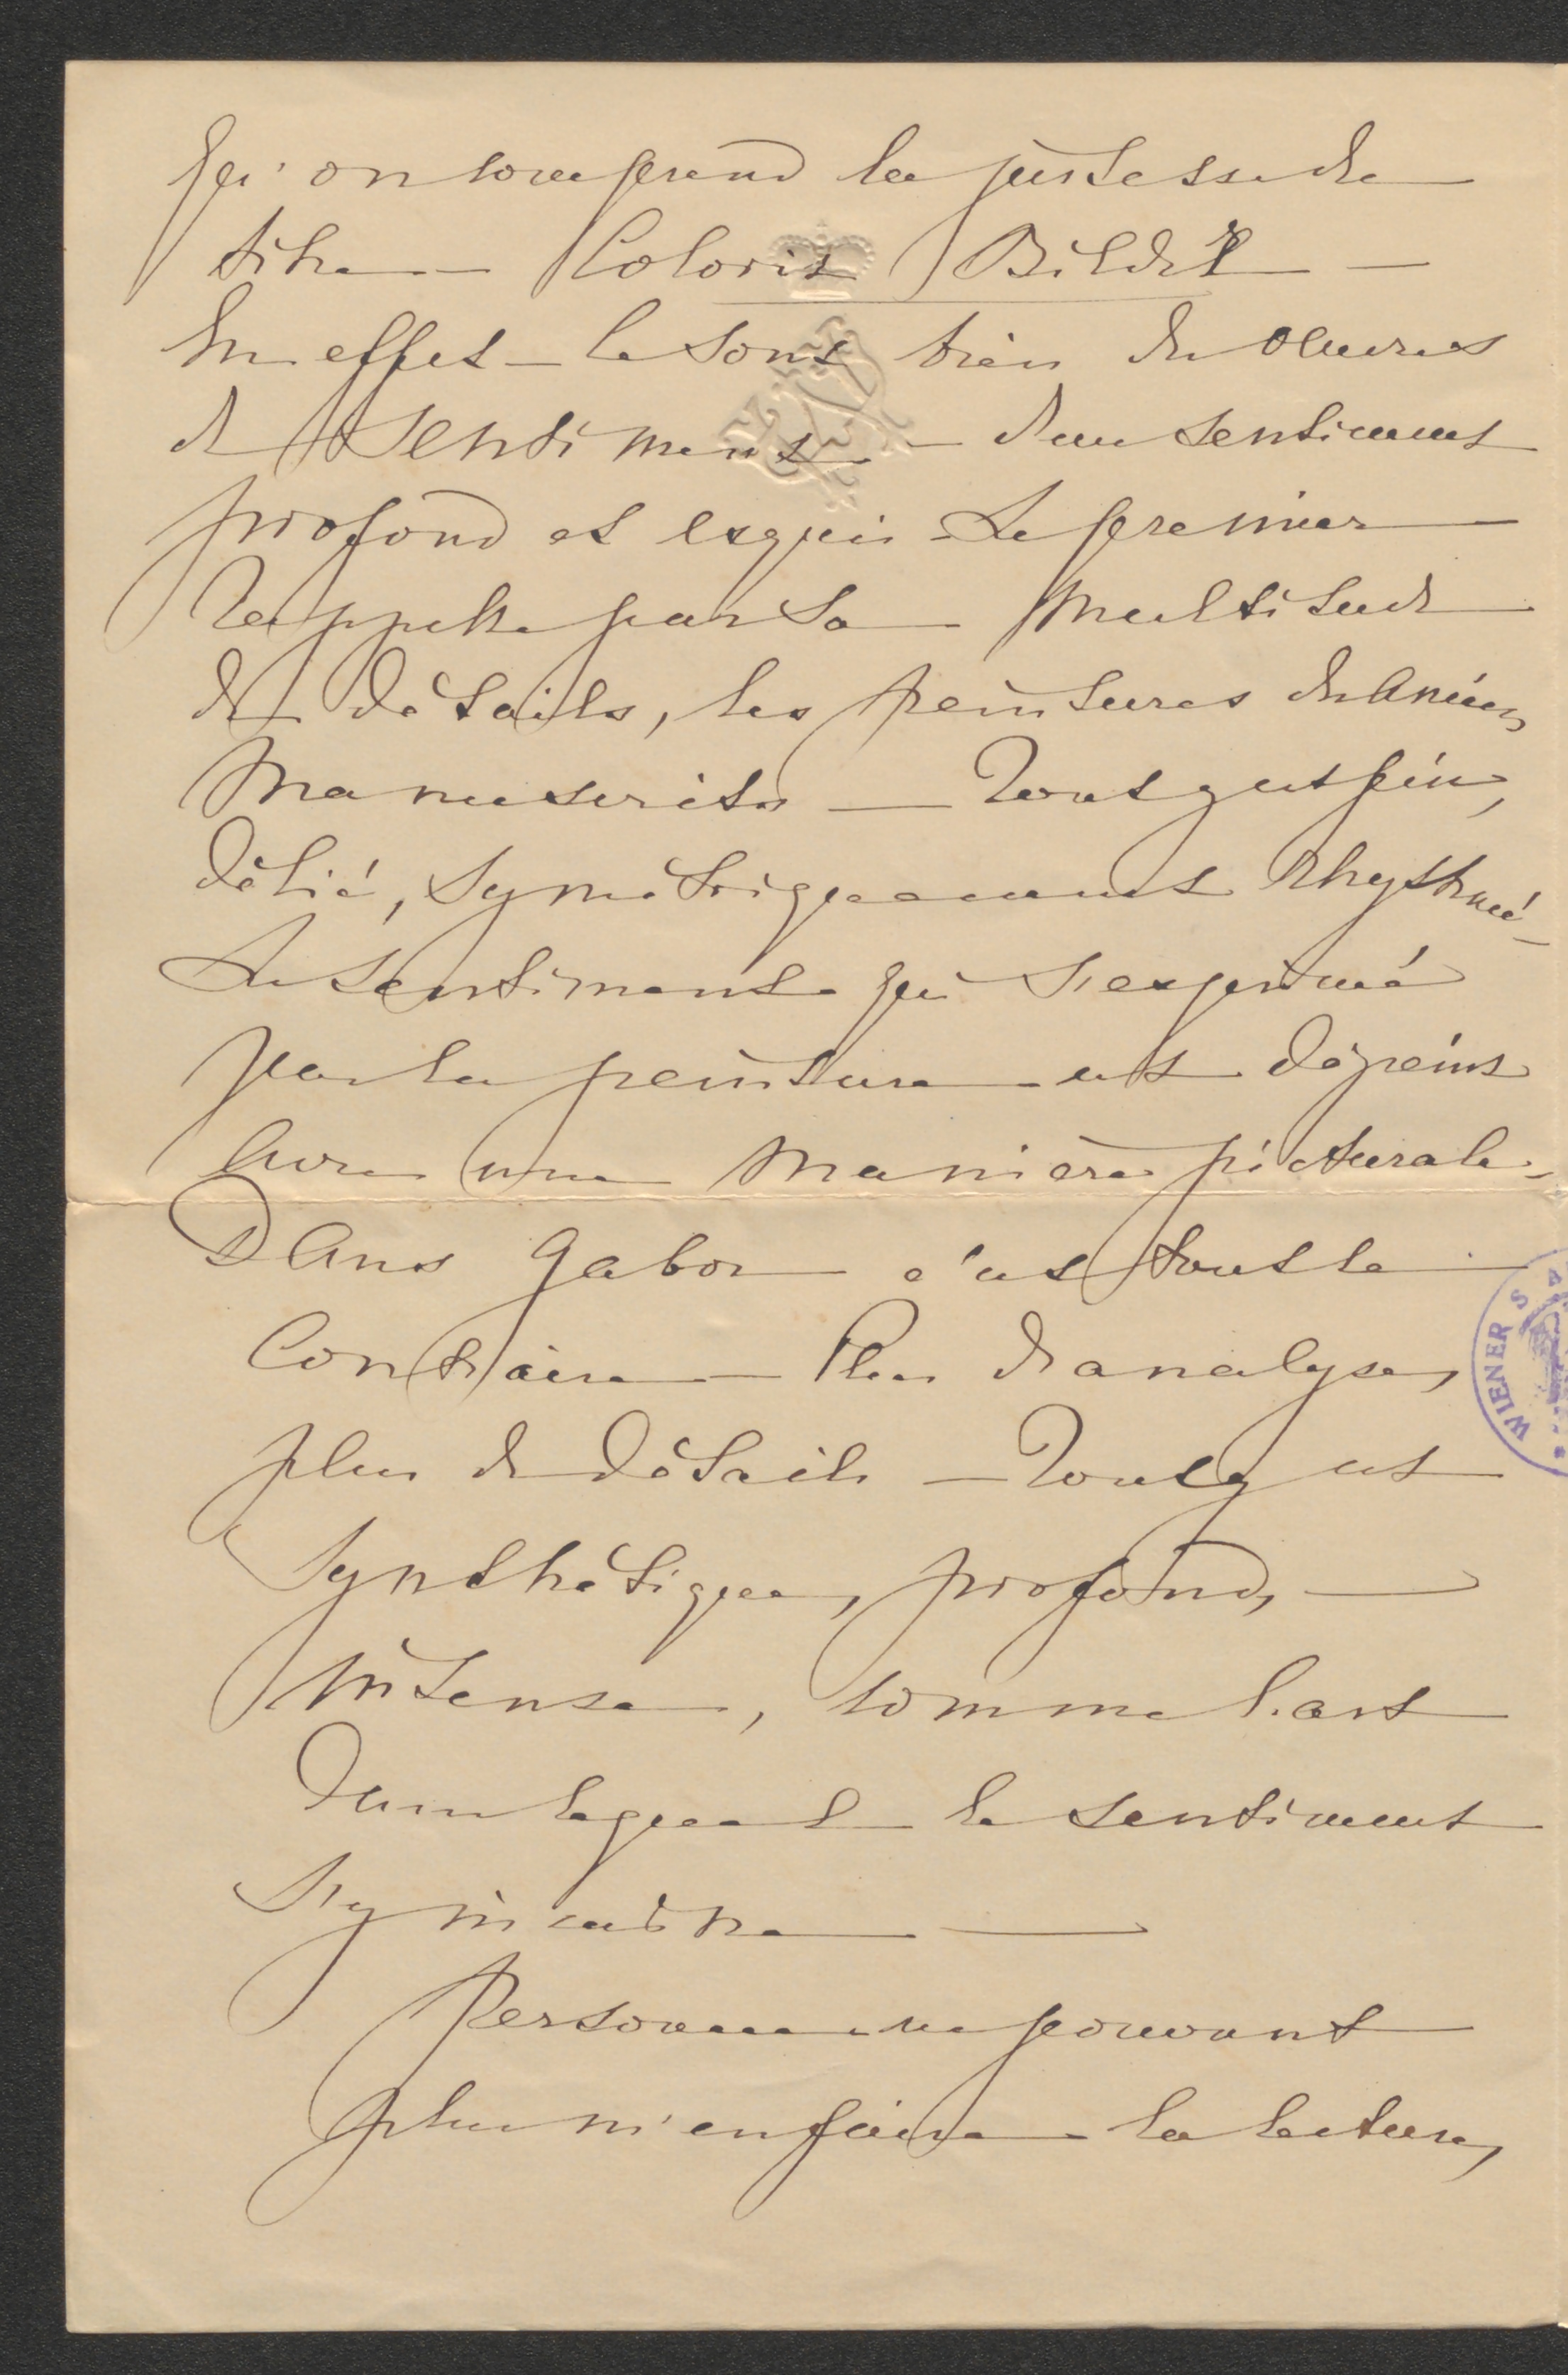 qu'on comprend la justesse du
titre — Coloris Bilder —
En effet — ce sont bien des œuvres
de sentiment — d'un sentiment
profond et exquis — Le premier
rappelle par sa multitude
de détails, les peintures des anciens
manuscrits — Tout y est fin,
délié, symétriquement rhythmé —
Le sentiment qui s'exprime
par la peinture — est dépeint
avec une manière picturale —
Dans Gabor c'est tout le
contraire — Plus d'analyse,
plus de détails — Tout y est
synthétique, profond, —
intense, comme l'art
dans lequel le sentiment
s'y incarne —
Personne ne pouvant
plus m'en faire la lecture,
WIENER S